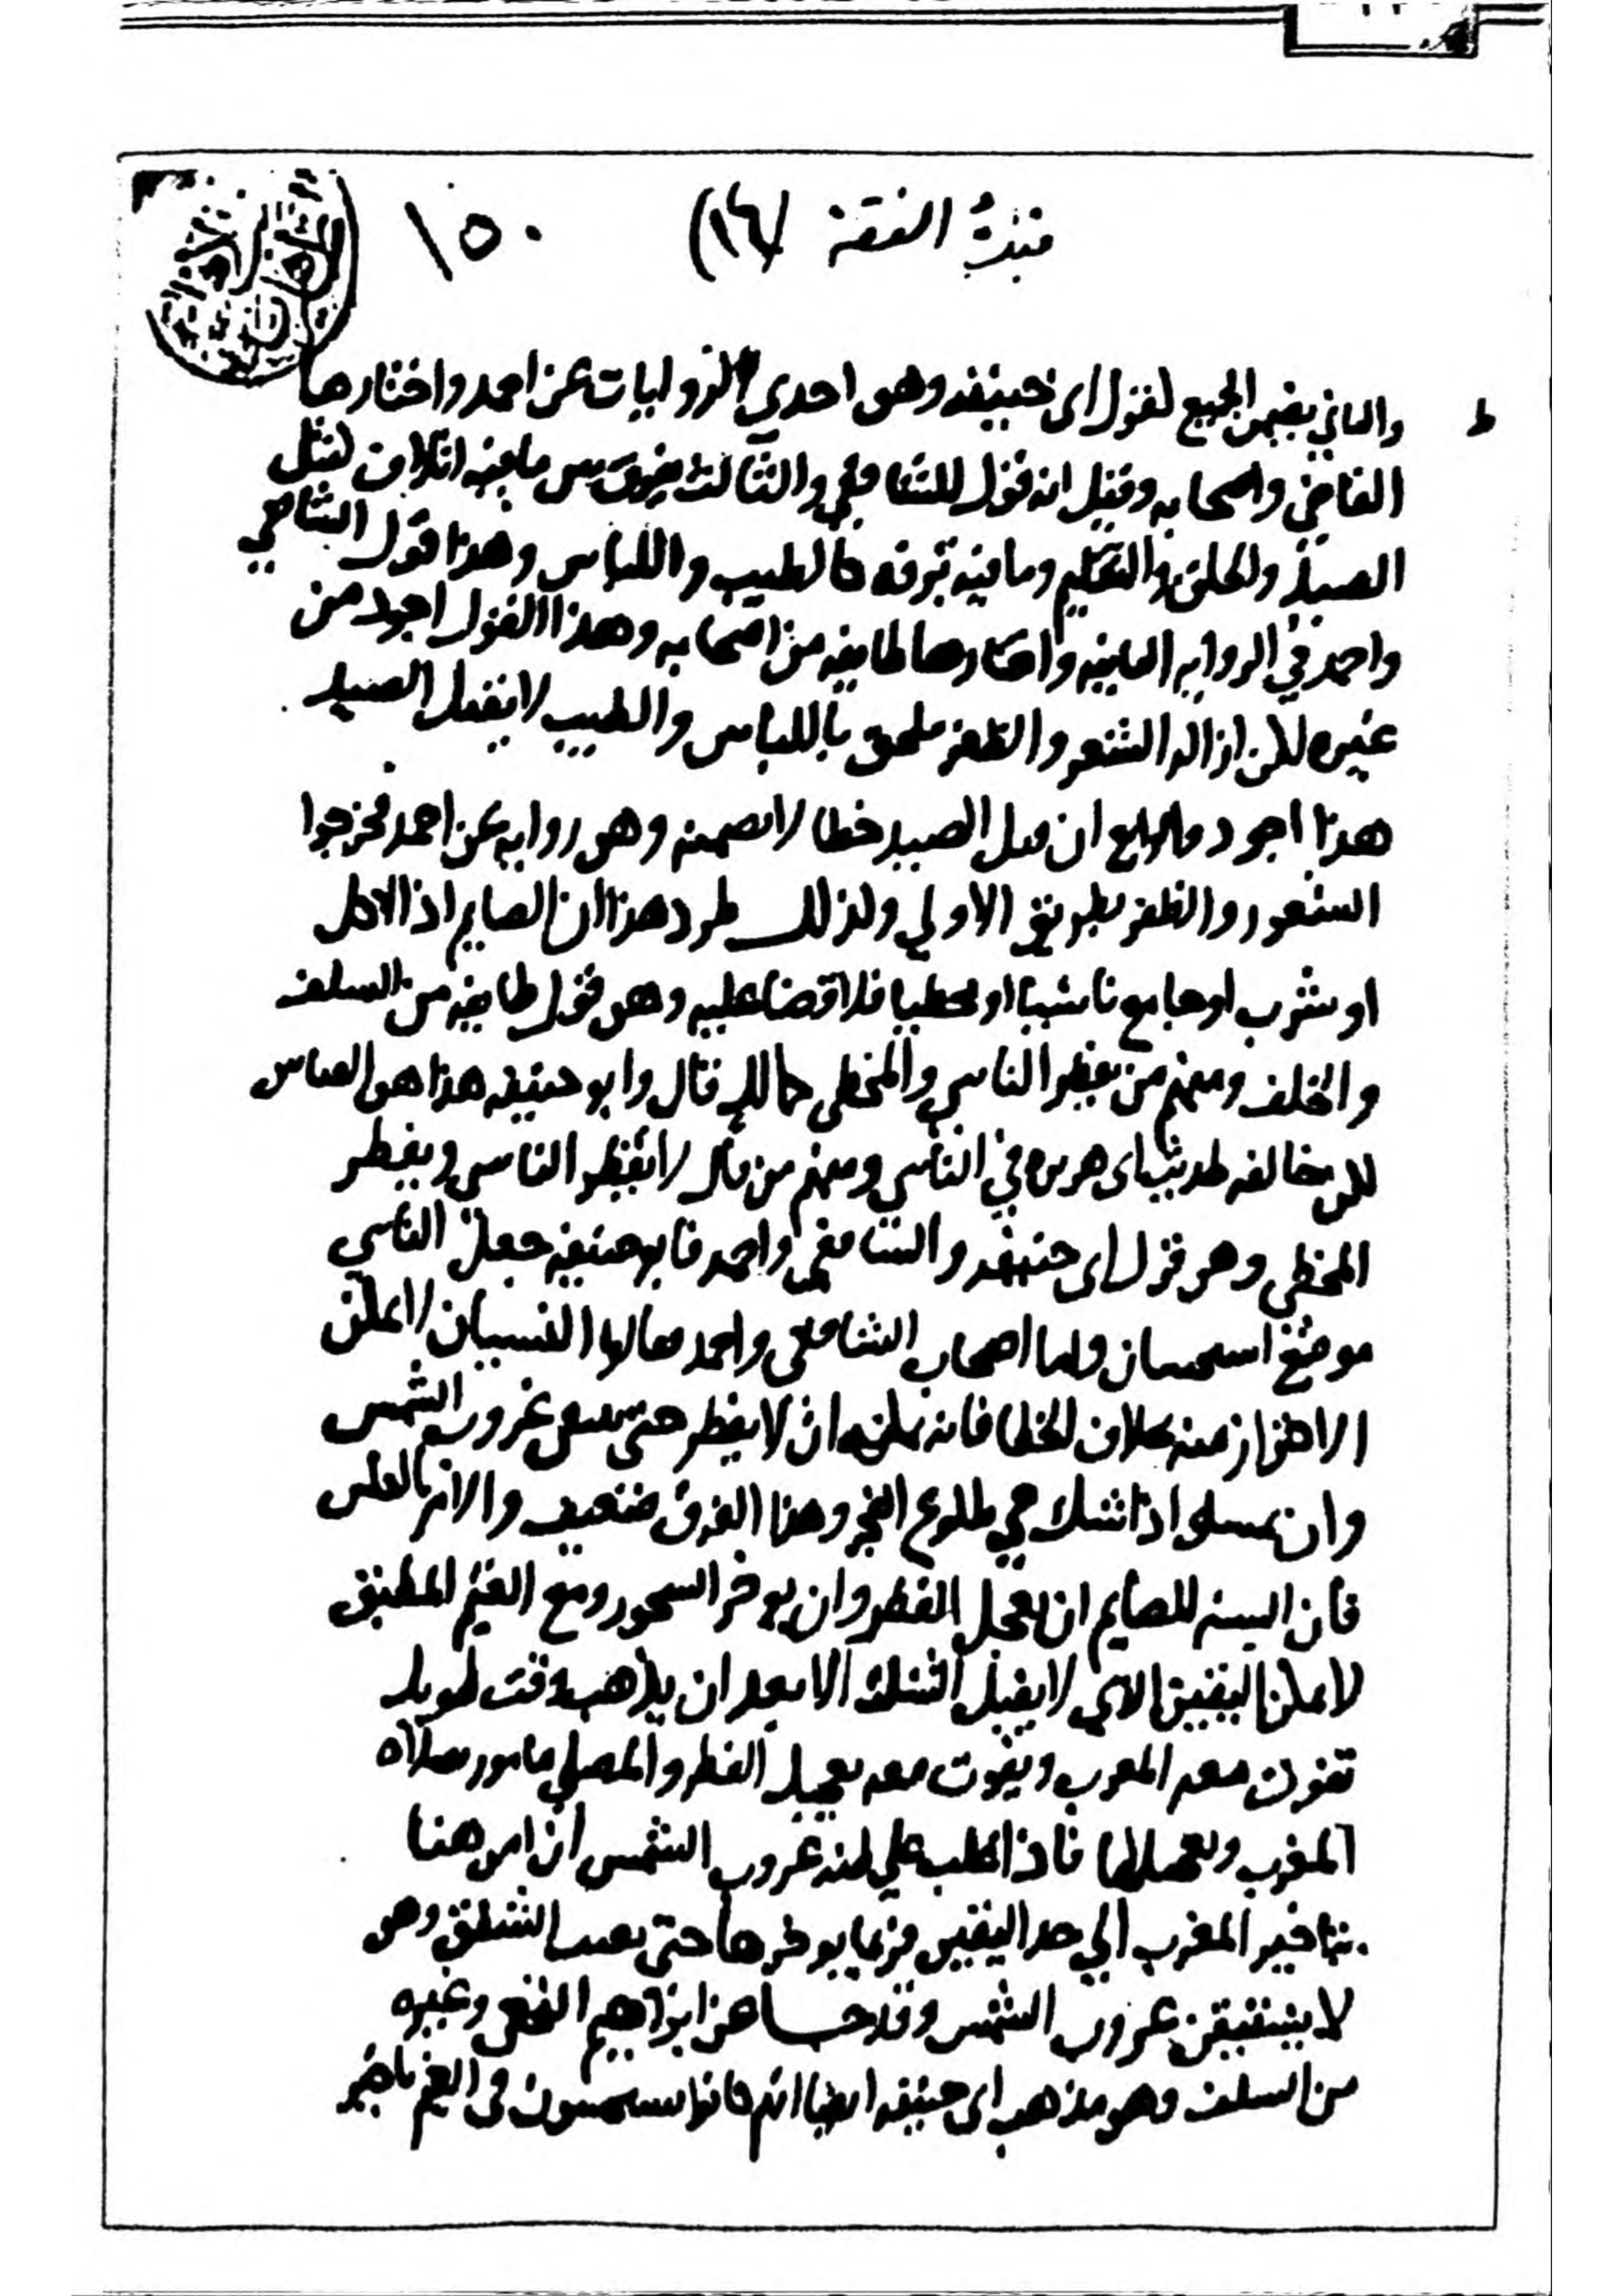 نبذة الفقه (١٦) ١٥٠
والثاني يضمن الجميع لقول ابى حنيفه وهو احدى الروايات عن احمد واختارها
القاضي واصحابه وقيل انه قول للشافعي والثالث يفرق بين ما فيه اتلاف لقتل
الصيد والحلق والتقليم وما فيه ترفه كالطيب واللباس وهذا قول الشافعي
واحمد في الروايه الثانيه واختارها طايفه من اصحابه وهذا القول اجود من
غيره لكن ازاله الشعر والظفر ملحق باللباس والطيب لا بقتل الصيد
هذا اجود والرابع ان قتل الصيد خطا لا يضمنه وهو روايه عن احمد فخرجوا
الشعور والظفر بطريق الاولي ولذلك طرد هذا ان الصايم اذا اكل
او شرب او جامع ناسيا او مخطيا فلا قضا عليه وهو قول طايفه من السلف
والخلف ومنهم من يفطر الناسي والمخطي كمالك قال وابو حنيفه هذا هو القياس
لكن خالفه لحديث ابى هريره في الناسي ومنهم من قال لا يفطر الناسي ويفطر
المخطي وهو قول ابى حنيفه والشافعي واحمد فابو حنيفه جعل الناسي
موضع استحسان واما اصحاب الشافعي واحمد فقالوا النسيان لا يمكن
الاحتراز منه بخلاف الخطا فانه يمكنه ان لا يفطر حتى يتيقن غروب الشمس
وان يمسك اذا شك في طلوع الفجر وهذا الفرق ضعيف والامر بالعكس
فان السنه للصايم ان يعجل الفطر وان يوخر السحور ومع الغيم المطبق
لا يمكن اليقين الذي لا يقبل الشك الا بعد ان يذهب وقت طويل
تفوت معه المغرب ويفوت معه تعجيل الفطر والمصلي مامور بصلاه
المغرب وتعجيلها فاذا غلب علي ظنه غروب الشمس ان امر هنا
بتاخير المغرب الي حد اليقين فربما يوخرها حتى يغيب الشفق وهو
لا يستيقن غروب الشمس وقد جا عن ابراهيم النخعي وغيره
من السلف وهو مذهب ابى حنيفه ايضا انهم كانوا يستحبون في الغيم تاخير